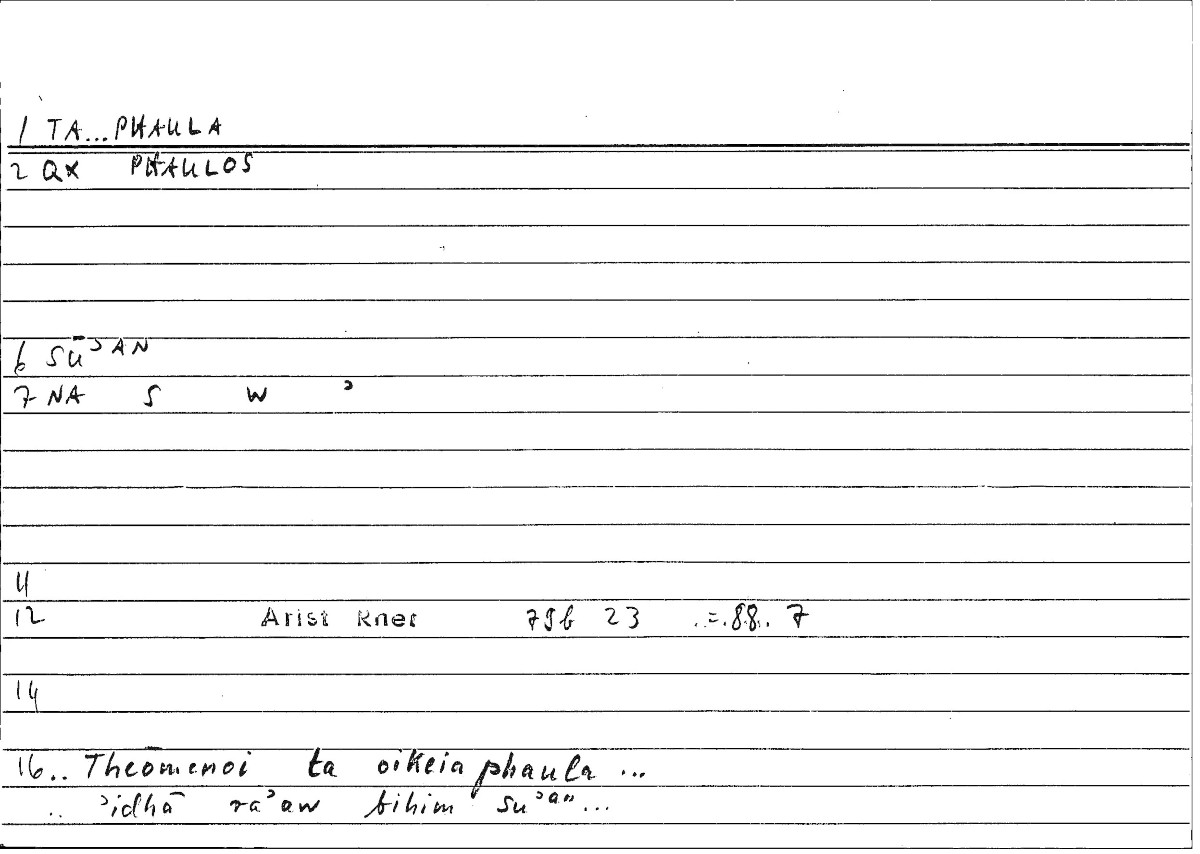 1 TA...PHAULA
2 QX PHAULOS
6 SŪʾAN
7 NA S W ʾ
11
12 Arist Rhet 79b 23 .=.88.. 7
14
16.. Theōmenoi ta oikeia phaula ...
.. ʾidhā raʾaw bihim suʾan...